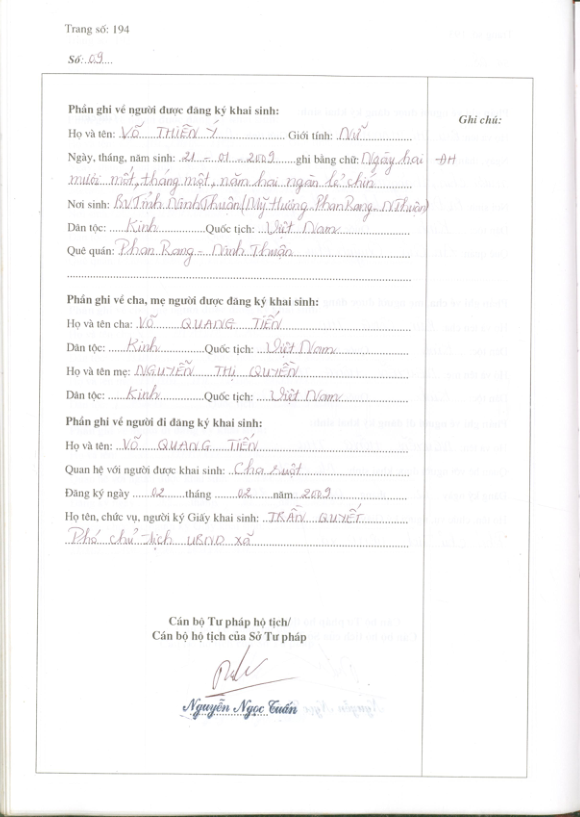 Trang số: 194
Số: 09
Phần ghi về người được đăng ký khai sinh:
Ghi chú:
Họ và tên: VÕ THIÊN Ý Giới tính: Nữ
Ngày, tháng, năm sinh: 21 - 01 - 2009 ghi bằng chữ: Ngày hai -ĐH
mươi mốt, tháng một, năm hai ngàn lẻ chín
Nơi sinh: BV Tỉnh Ninh Thuận (Mỹ Hương, Phan Rang - NThuận)
Dân tộc: Kinh Quốc tịch: Việt Nam
Quê quán: Phan Rang - Ninh Thuận
Phần ghi về cha, mẹ người được đăng ký khai sinh:
Họ và tên cha: VÕ QUANG TIẾN
Dân tộc: Kinh Quốc tịch: Việt Nam
Họ và tên mẹ: NGUYỄN THỊ QUYỀN
Dân tộc: Kinh Quốc tịch: Việt Nam
Phần ghi về người đi đăng ký khai sinh:
Họ và tên: VÕ QUANG TIẾN
Quan hệ với người được khai sinh: Cha ruột
Đăng ký ngày 02 tháng 02 năm 2009
Họ tên, chức vụ, người ký Giấy khai sinh: TRẦN QUYẾT
Phó chủ tịch UBND xã
Cán bộ Tư pháp hộ tịch/
Cán bộ hộ tịch của Sở Tư pháp
Nguyễn Ngọc Tuấn